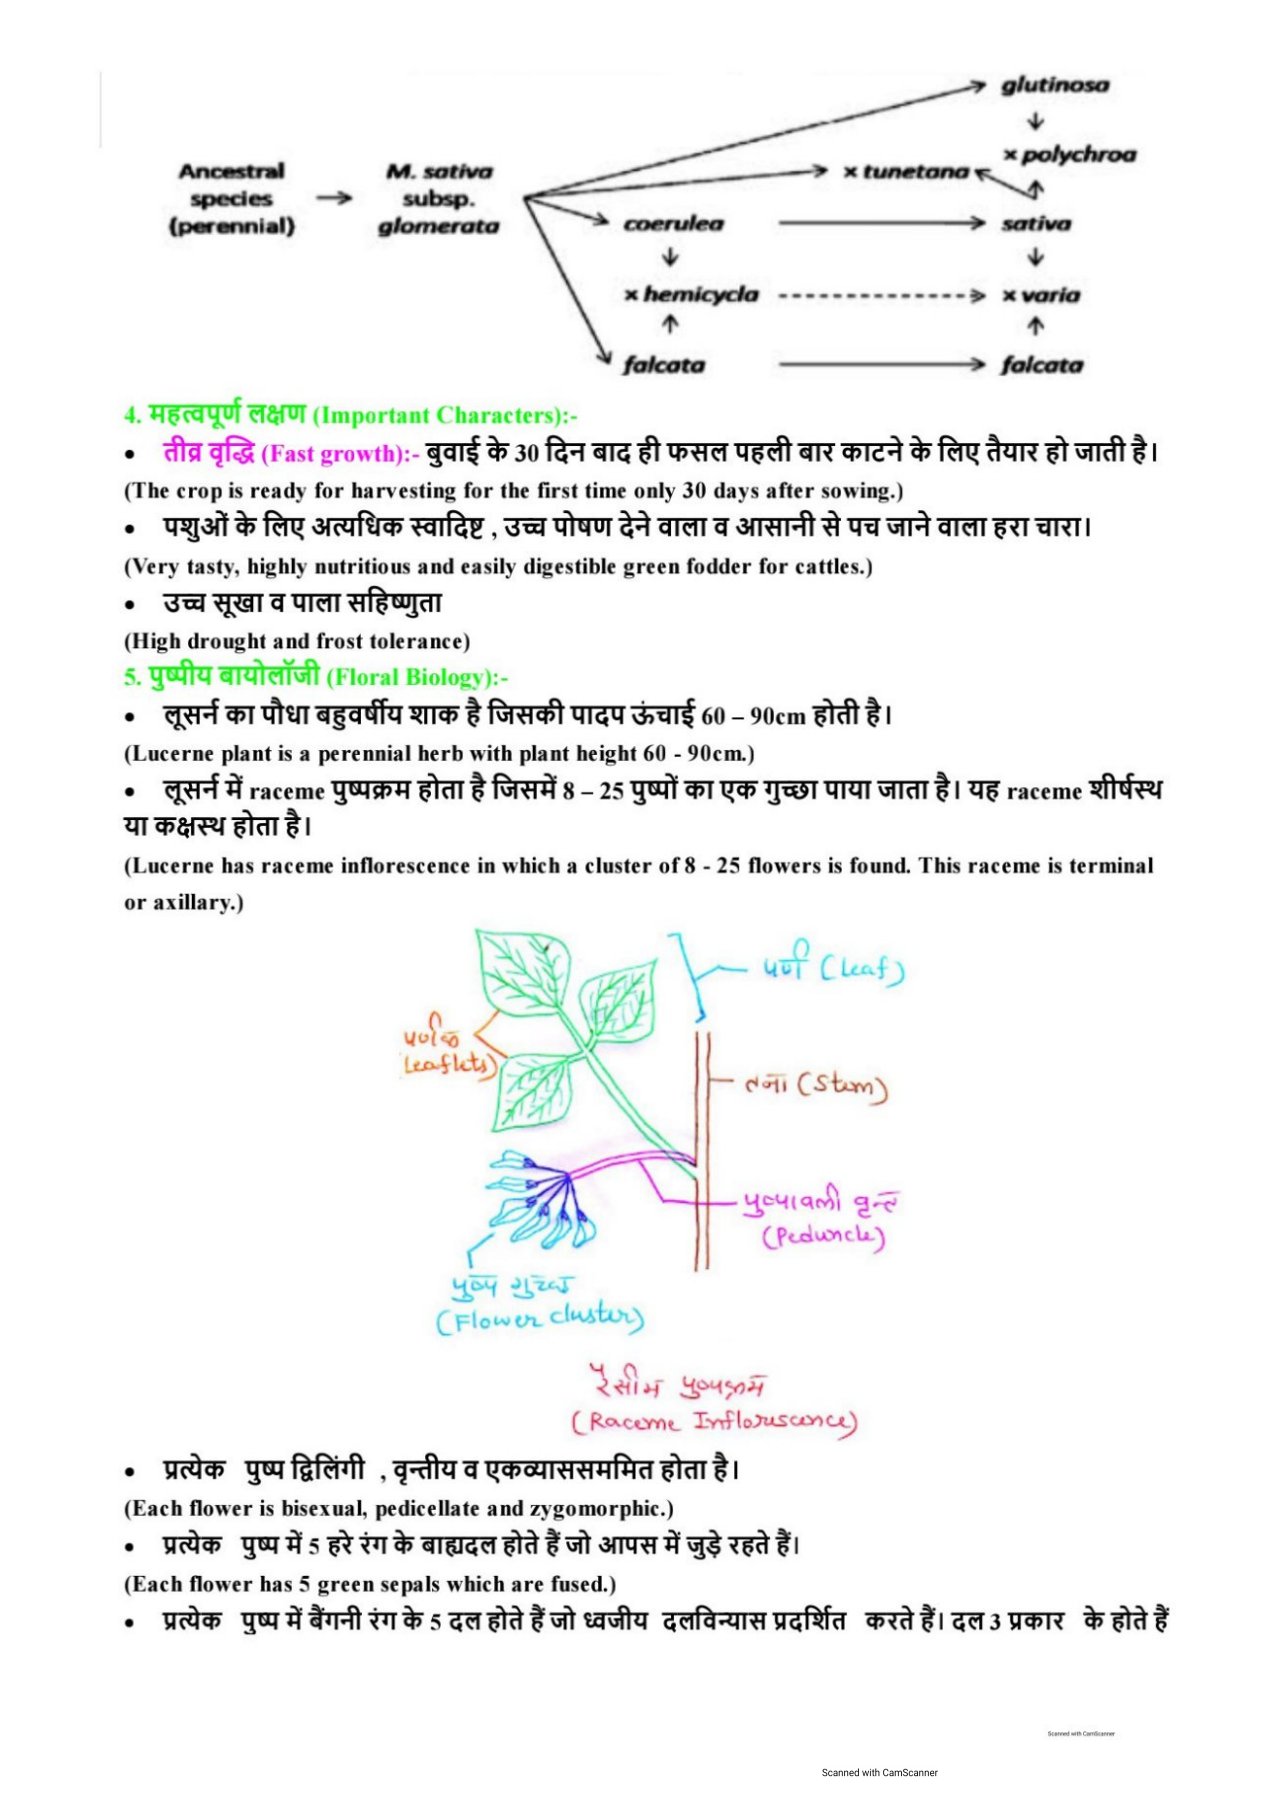 glutinosa
× polychroa
Ancestral species (perennial)
M. sativa subsp. glomerata
× tunetana
coerulea
sativa
× hemicycla
× varia
falcata
falcata
4. महत्वपूर्ण लक्षण (Important Characters):-
• तीव्र वृद्धि (Fast growth):- बुवाई के 30 दिन बाद ही फसल पहली बार काटने के लिए तैयार हो जाती है।
(The crop is ready for harvesting for the first time only 30 days after sowing.)
• पशुओं के लिए अत्यधिक स्वादिष्ट , उच्च पोषण देने वाला व आसानी से पच जाने वाला हरा चारा।
(Very tasty, highly nutritious and easily digestible green fodder for cattles.)
• उच्च सूखा व पाला सहिष्णुता
(High drought and frost tolerance)
5. पुष्पीय बायोलॉजी (Floral Biology):-
• लूसर्न का पौधा बहुवर्षीय शाक है जिसकी पादप ऊंचाई 60 – 90cm होती है।
(Lucerne plant is a perennial herb with plant height 60 - 90cm.)
• लूसर्न में raceme पुष्पक्रम होता है जिसमें 8 – 25 पुष्पों का एक गुच्छा पाया जाता है। यह raceme शीर्षस्थ
या कक्षस्थ होता है।
(Lucerne has raceme inflorescence in which a cluster of 8 - 25 flowers is found. This raceme is terminal
or axillary.)
पर्ण (Leaf)
Leaflets)
तना (Stem)
पुष्पावली वृन्त
(Peduncle)
पुष्प गुच्छ
(Flower cluster)
रैसीम पुष्पक्रम
(Raceme Inflorescence)
• प्रत्येक पुष्प द्विलिंगी , वृन्तीय व एकव्याससममित होता है।
(Each flower is bisexual, pedicellate and zygomorphic.)
• प्रत्येक पुष्प में 5 हरे रंग के बाह्यदल होते हैं जो आपस में जुड़े रहते हैं।
(Each flower has 5 green sepals which are fused.)
• प्रत्येक पुष्प में बैंगनी रंग के 5 दल होते हैं जो ध्वजीय दलविन्यास प्रदर्शित करते हैं। दल 3 प्रकार के होते हैं
Scanned with CamScanner
Scanned with CamScanner